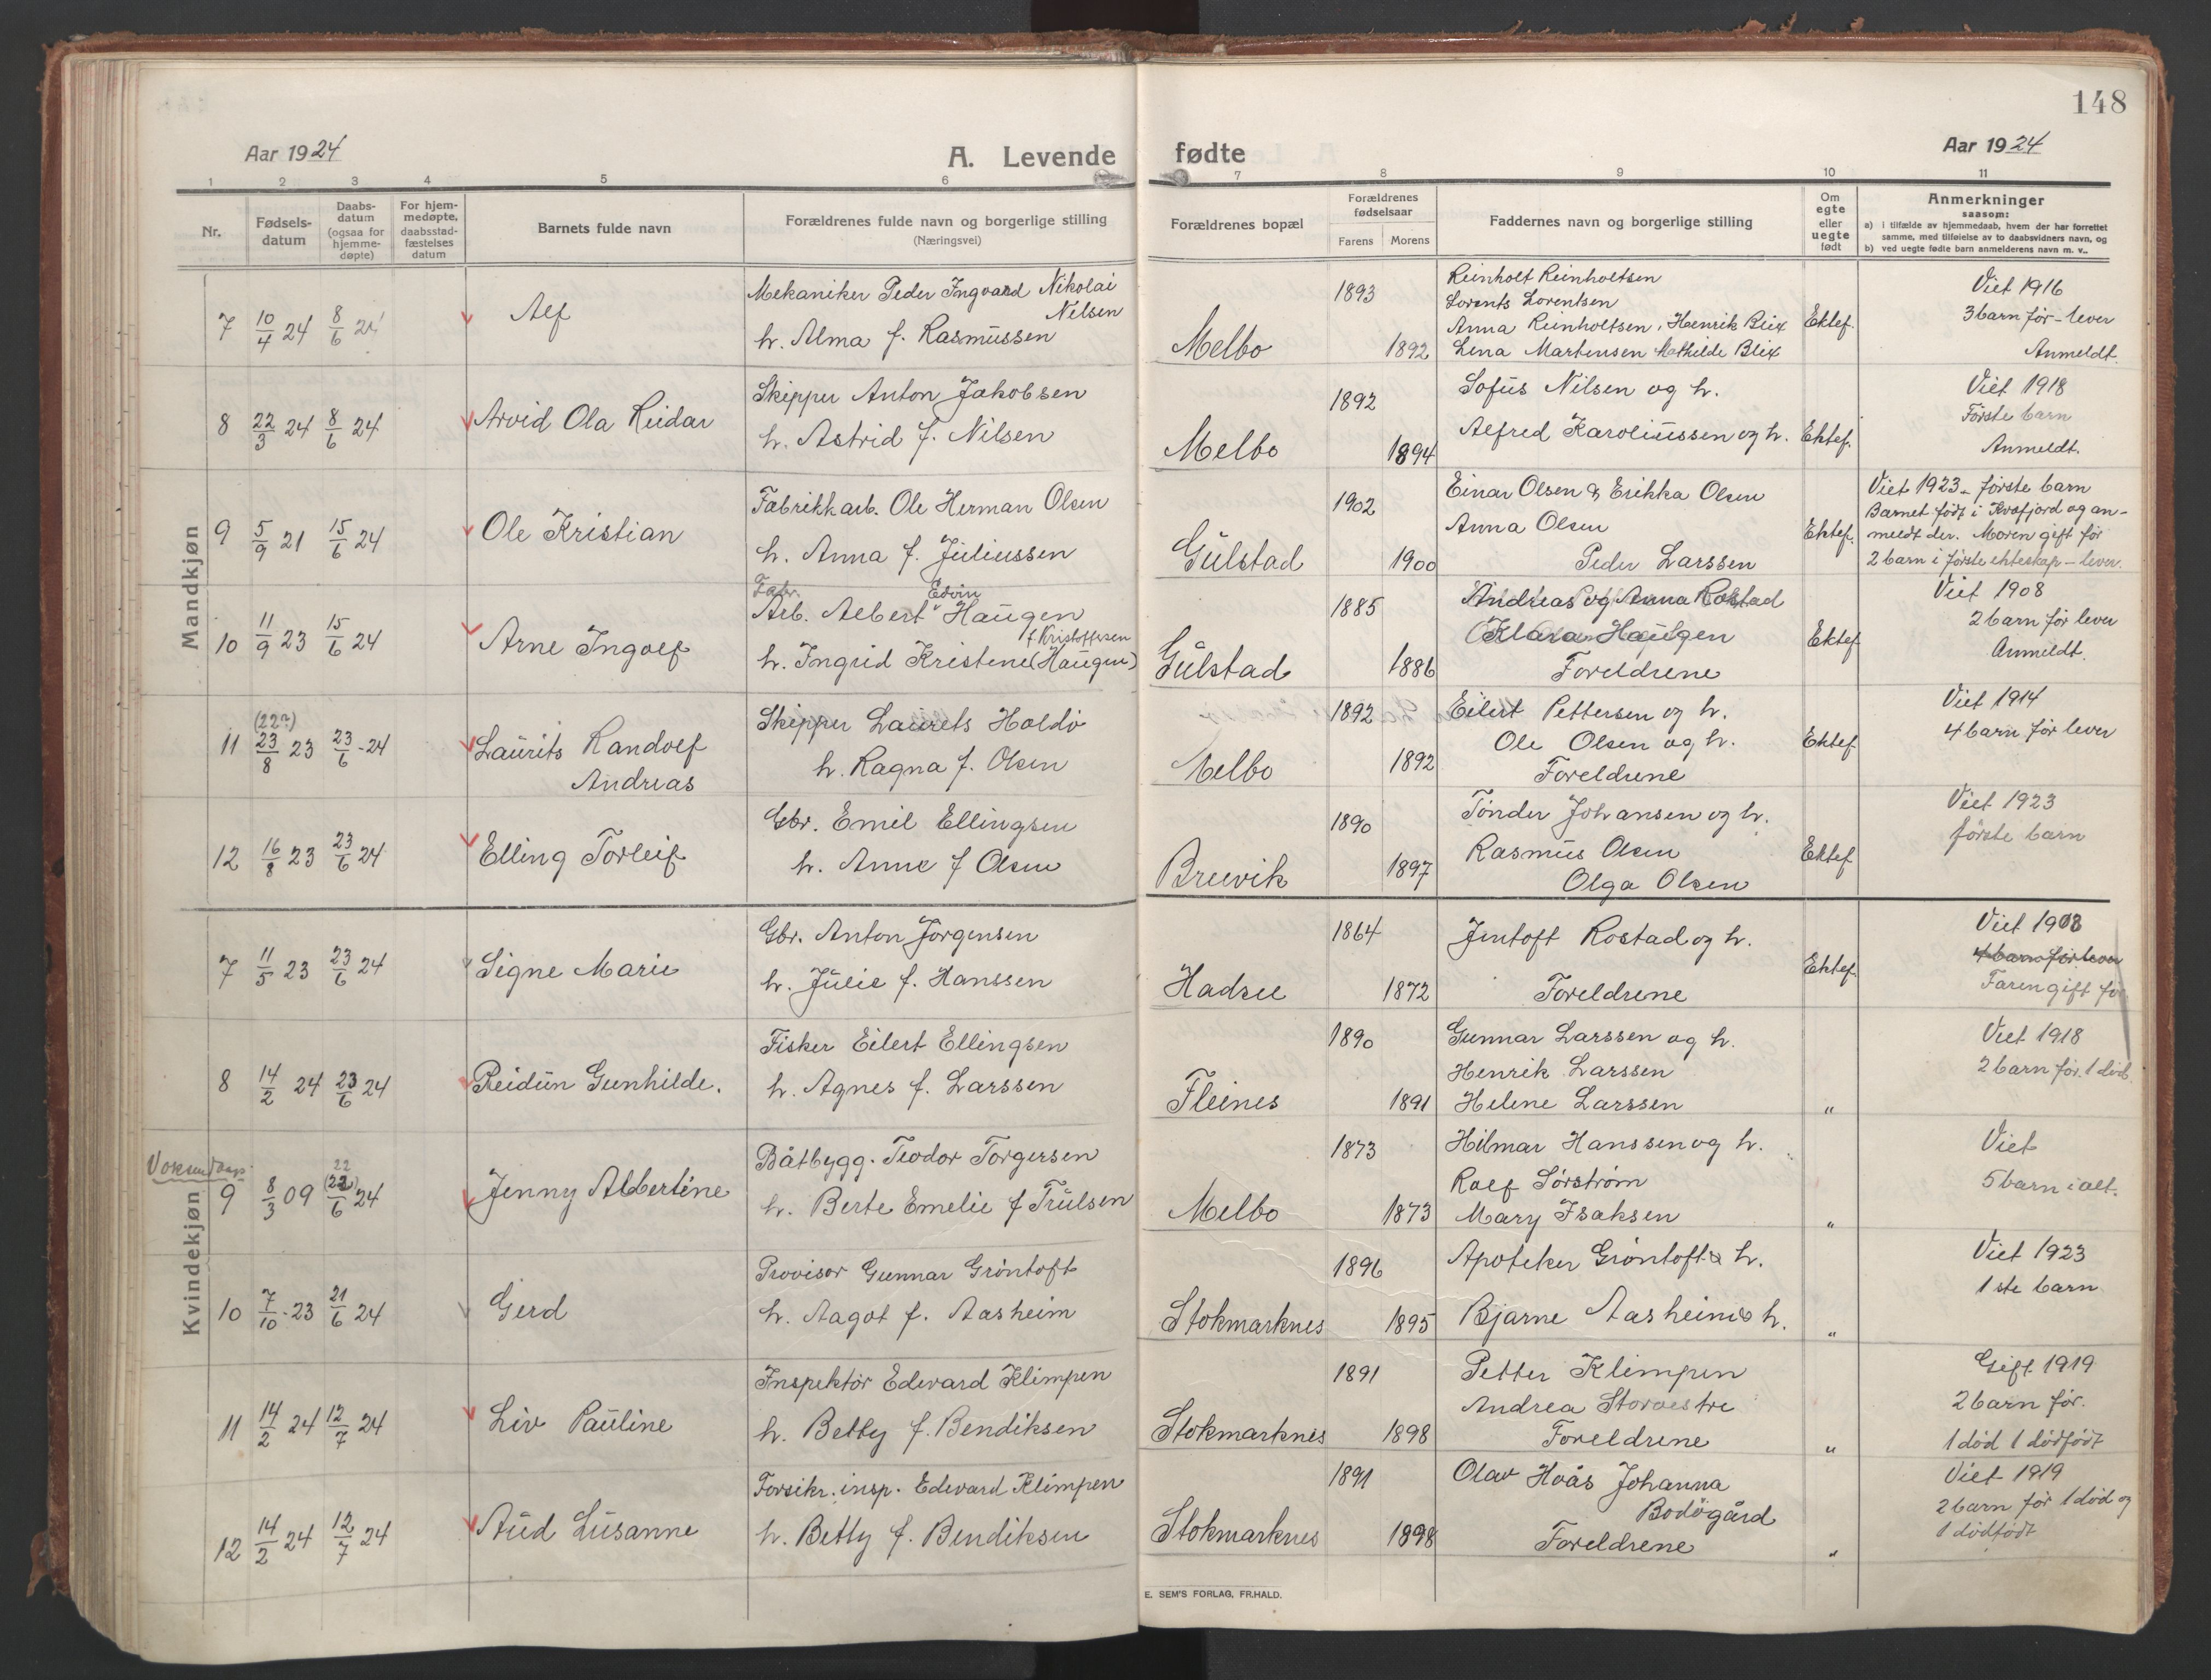 148
Aar 1924
A. Levende fødte
Aar 1924
1 2 3 4 5 6 7 8 9 10 11
Nr.
Fødsels-
datum
Daabs-
datum
(ogsaa for
hjemme-
døpte)
For hjem-
medøpte,
daabsstad-
fæstelses
datum
Barnets fulde navn
Forældrenes fulde navn og borgerlige stilling
(Næringsvei)
Forældrenes bopæl
Forældrenes
fødselsaar
Farens Morens
Faddernes navn og borgerlige stilling
Om
egte
eller
uegte
født
Anmerkninger
saasom:
a) i tilfælde av hjemmedaab, hvem der har forrettet
samme, med tilføielse av to daabsvidners navn, og
b) ved uegte fødte barn anmelderens navn m. v..
Mandkjøn
7 10/4 24 8/6 24 Alf
Mekaniker Peder Ingvard Nikolai
Nilsen
h. Alma f. Rasmussen
Melbo 1893 1892
Reinholt Reinholtsen
Lorents Lorentsen
Anna Reinholtsen, Henrik Blix
Lena Martensen Mathilde Blix
Ektef.
Viet 1916
3 barn før - lever
Anmeldt.
8 22/3 24 8/6 24 Arvid Ola Reidar
Skipper Anton Jakobsen
h. Astrid f. Nilsen
Melbo 1892 1894
Sofus Nilsen og h.
Alfred Karoliussen og h.
Ektef.
Viet 1918
Første barn
Anmeldt.
9 5/9 21 15/6 24 Ole Kristian
Fabrikkarb. Ole Herman Olsen
h. Anna f. Juliussen
Gulstad 1902 1900
Einar Olsen & Erikka Olsen
Anna Olsen
Peder Larssen
Ektef.
Viet 1923 - første barn
Barnet født i Kvæfjord og an-
meldt der. Moren gift før
2 barn i første ekteskap - lever.
10 11/9 23 15/6 24 Arne Ingolf
Fabr. Edvin
Arb. Albert Haugen
f. Kristoffersen
h. Ingrid Kristene (Haugen)
Gulstad 1885 1886
Andreas og Anna Rostad
Klara Haugen
Foreldrene
Ektef
Viet 1908
2 barn før lever
Anmeldt.
11 (22?) 23/8 23 23/6 - 24 Laurits Randolf
Andreas
Skipper Laurets Holdø
h. Ragna f. Olsen
Melbo 1892 1892
Eilert Pettersen og h.
Ole Olsen og h.
Foreldrene
Ektef
Viet 1914
4 barn før lever
12 16/8 23 23/6 24 Elling Torleif
Gbr. Emil Ellingsen
h. Anne f Olsen
Breivik 1890 1897
Tønder Johansen og h.
Rasmus Olsen
Olga Olsen
Ektef
Viet 1923
første barn
Kvindekjøn
7 11/5 23 23/6 24 Signe Marie
Gbr. Anton Jørgensen
h. Julie f. Hanssen
Hadsel 1864 1872
Jentoft Rostad og h.
Foreldrene
Ektef.
Viet 1908
4 barn før lever
Faren gift før
8 14/2 24 23/6 24 Reidun Gunhilde.
Fisker Eilert Ellingsen
h. Agnes f. Larssen
Fleines 1890 1891
Gunnar Larssen og h.
Henrik Larssen
Helene Larssen
"
Viet 1918
2 barn før. 1 død.
Voksendaap.
9 8/3 09 22 (22)/6 24 Jenny Albertine
Båtbygg. Teodor Torgersen
h. Berte Emelie f Trulsen
Melbo 1873 1873
Hilmar Hanssen og h.
Rolf Sørstrøm
Mary Isaksen
"
Viet
5 barn i alt.
10 7/10 - 23 21/6 24 Gerd
Provisor Gunnar Grøntoft
h. Aagot f. Aasheim
Stokmarknes 1896 1895
Apoteker Grøntoft & h.
Bjarne Aasheim & h.
"
Viet 1923
1 ste barn
11 14/2 24 12/7 24 Liv Pauline
Inspektør Edevard Klimpen
h. Betty f. Bendiksen
Stokmarknes 1891 1898
Petter Klimpen
Andrea Storvestre
Foreldrene
"
Gift 1919
2 barn før.
1 død 1 dødfødt
12 14/2 24 12/7 24 Aud Susanne
Forsikr. insp. Edevard Klimpen
h. Betty f. Bendiksen
Stokmarknes 1891 1898
Olav Hoås Johanna
Bodøgård
Foreldrene
"
Viet 1919
2 barn før 1 død og
1 dødfødt
E. SEM'S FORLAG, FR.HALD.